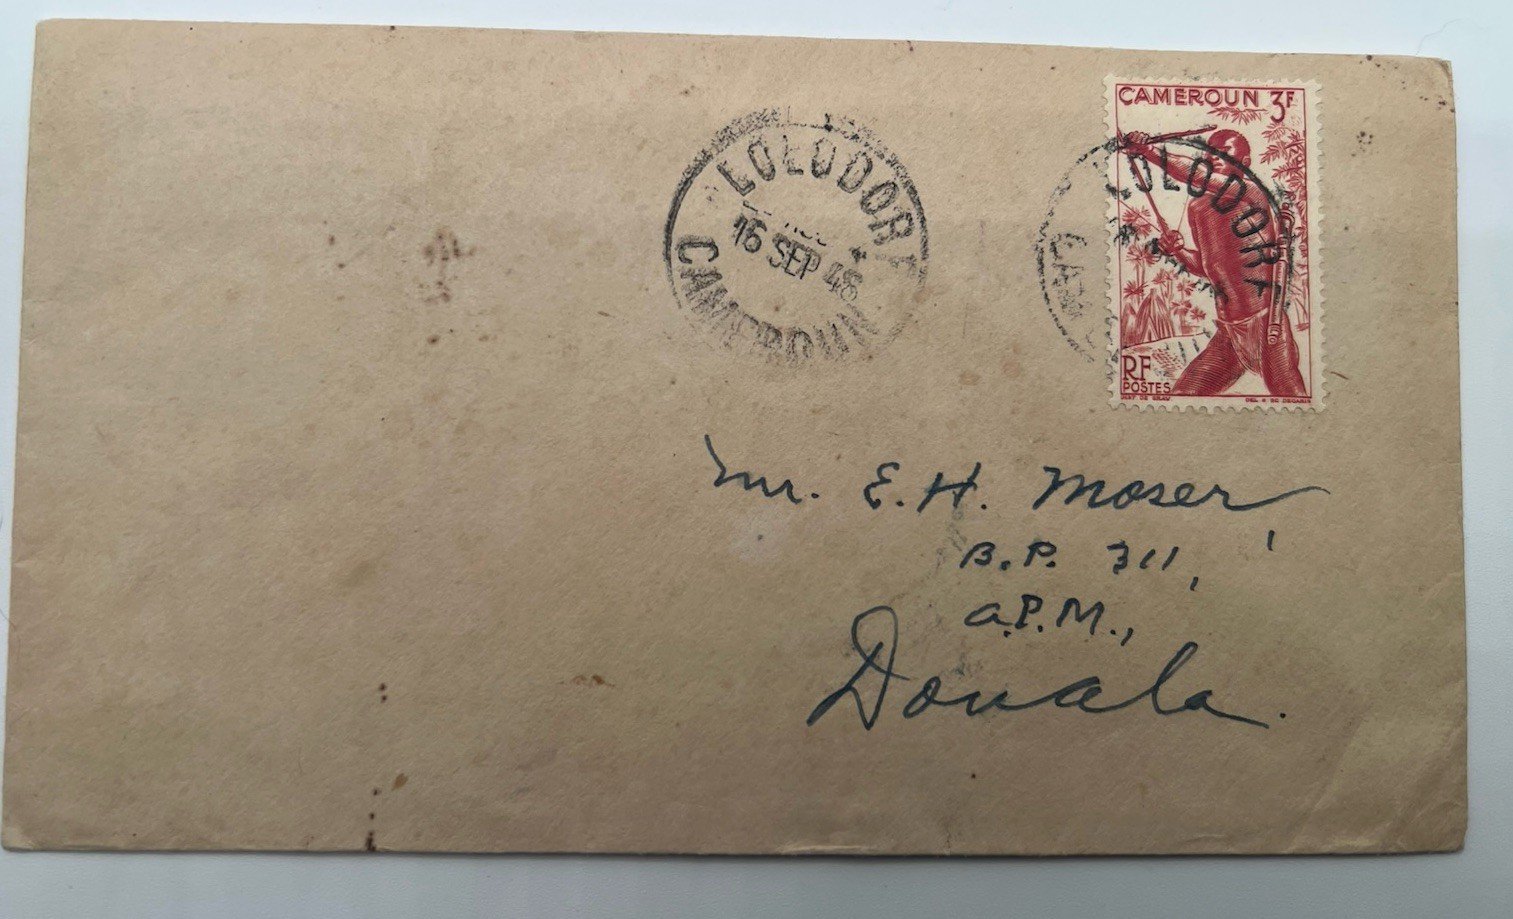 LOLODORF
16 SEP 48
CAMEROUN
CAMEROUN 3F
LOLODORF
RF
POSTES
Mr. E. H. Moser,
B.P. 311,
a.P.M.,
Douala.